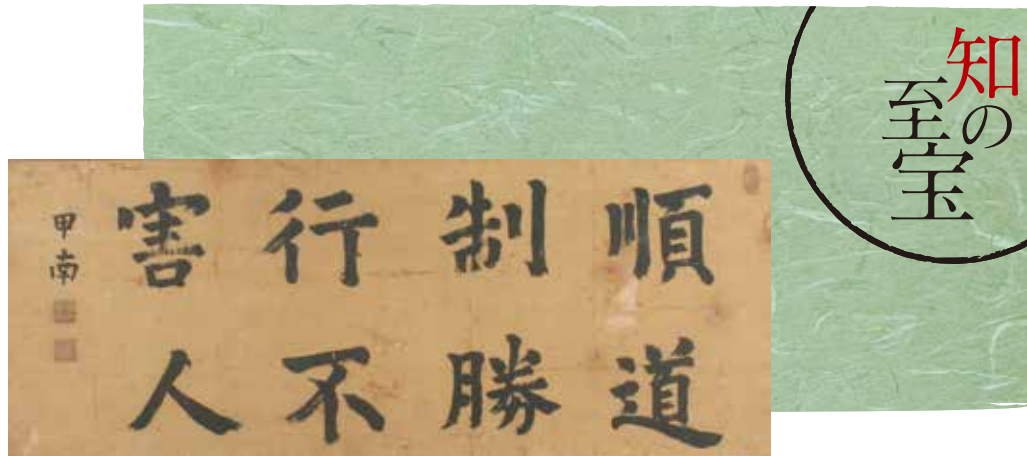 知の
至宝
順道
制勝
行不
害人
甲南